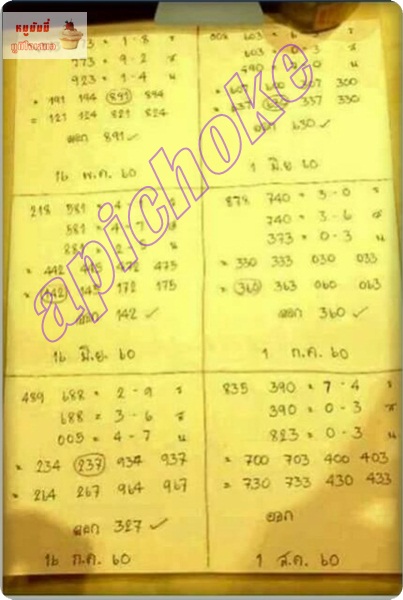 หมูอัมมี่
773 = 9 - 2 ซ
923 = 1 - 4 น
= 191 194 891 894
= 121 124 821 824
ออก 891 ✓
16 พ.ค. 60
603 = 0 - 3 ซ
= 607 600 307 300
= 637 630 337 330
ออก 630 ✓
1 มิ.ย 60
218 581 = 4
581 = 4 - 7
881 = 2
= 442 445 472 475
= 142 145 172 175
ออก 142 ✓
16 มิ.ย. 60
878 740 = 3 - 0 ร
740 = 3 - 6 ซ
373 = 0 - 3 น
= 330 333 030 033
= 360 363 060 063
ออก 360 ✓
1 ก.ค. 60
489 688 = 2 - 9 ร
688 = 3 - 6 ซ
005 = 4 - 7 น
= 234 237 934 937
= 264 267 964 967
ออก 327 ✓
16 ก.ค. 60
835 390 = 7 - 4 ร
390 = 0 - 3 ซ
823 = 0 - 3 น
= 700 703 400 403
= 730 733 430 433
ออก
1 ส.ค. 60
apichoke